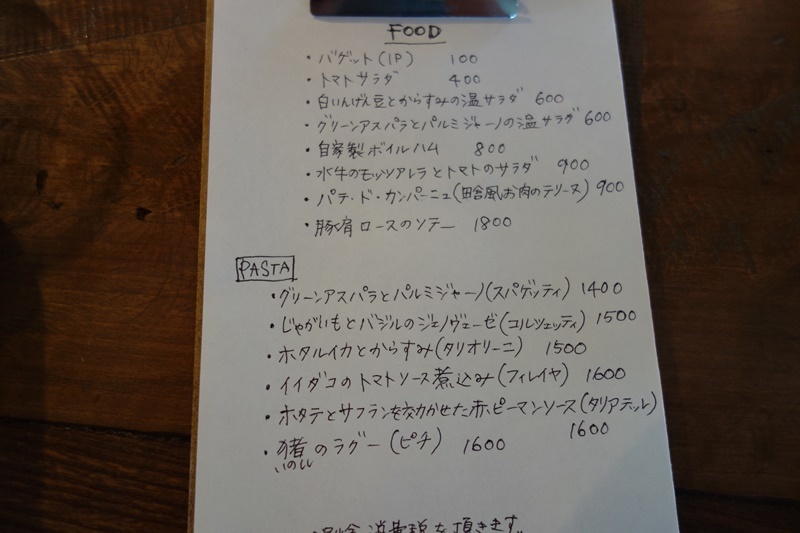 FOOD
・バゲット(1P) 100
・トマトサラダ 400
・白いんげん豆とからすみの温サラダ 600
・グリーンアスパラとパルミジャーノの温サラダ 600
・自家製ボイルハム 800
・水牛のモッツアレラとトマトのサラダ 900
・パテ・ド・カンパーニュ(田舎風お肉のテリーヌ) 900
・豚肩ロースのソテー 1800
PASTA
・グリーンアスパラとパルミジャーノ(スパゲッティ) 1400
・じゃがいもとバジルのジェノヴェーゼ(コルツェッティ) 1500
・ホタルイカとからすみ(タリオリーニ) 1500
・イイダコのトマトソース煮込み(フィレイヤ) 1600
・ホタテとサフランを効かせた赤ピーマンソース(タリアテッレ)
1600
・猪のラグー(ピチ) 1600
いのしし
別途消費税を頂きます。